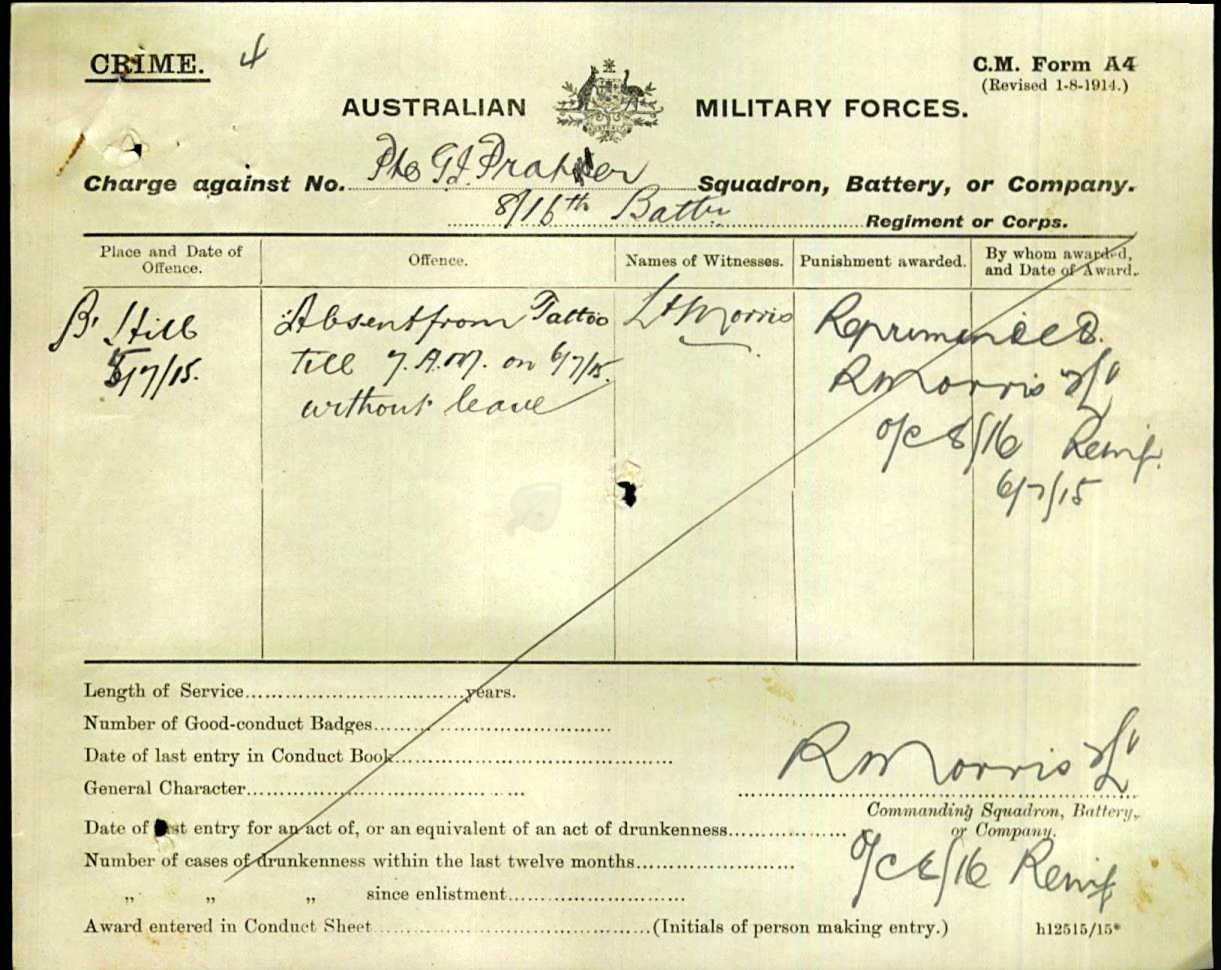 CRIME. 4
C.M. Form A4
(Revised 1-8-1914.)
AUSTRALIAN MILITARY FORCES.
Charge against No. Pte G.J. Squadron, Battery, or Company.
8/16th Battn Regiment or Corps.
Place and Date of Offence. Offence. Names of Witnesses. Punishment awarded. By whom awarded, and Date of Award.
B' Hill Absent from Tattoo Lt Morris Reprimanded.
5/7/15. till 7. A.M. on 6/7/15. R Morris Lt
without leave o/c 8/16 Reinf.
6/7/15
Length of Service years.
Number of Good-conduct Badges
Date of last entry in Conduct Book
General Character
R Morris Lt
Commanding Squadron, Battery,
or Company.
Date of last entry for an act of, or an equivalent of an act of drunkenness
Number of cases of drunkenness within the last twelve months
o/c 8/16 Reinf
„ „ „ since enlistment
Award entered in Conduct Sheet (Initials of person making entry.) h12515/15*